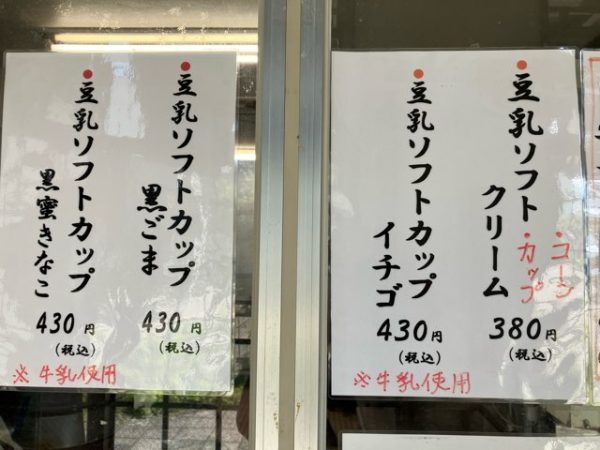 ●豆乳ソフト
クリーム
・コーン
・カップ
380円
(税込)
●豆乳ソフトカップ
イチゴ
430円
(税込)
※牛乳使用
●豆乳ソフトカップ
黒ごま
430円
(税込)
●豆乳ソフトカップ
黒蜜きなこ
430円
(税込)
※牛乳使用